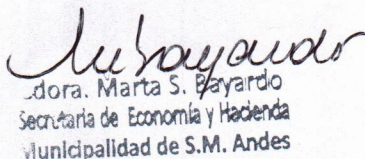 dora. Marta S. Bayardo
Secretaria de Economía y Hacienda
Municipalidad de S.M. Andes